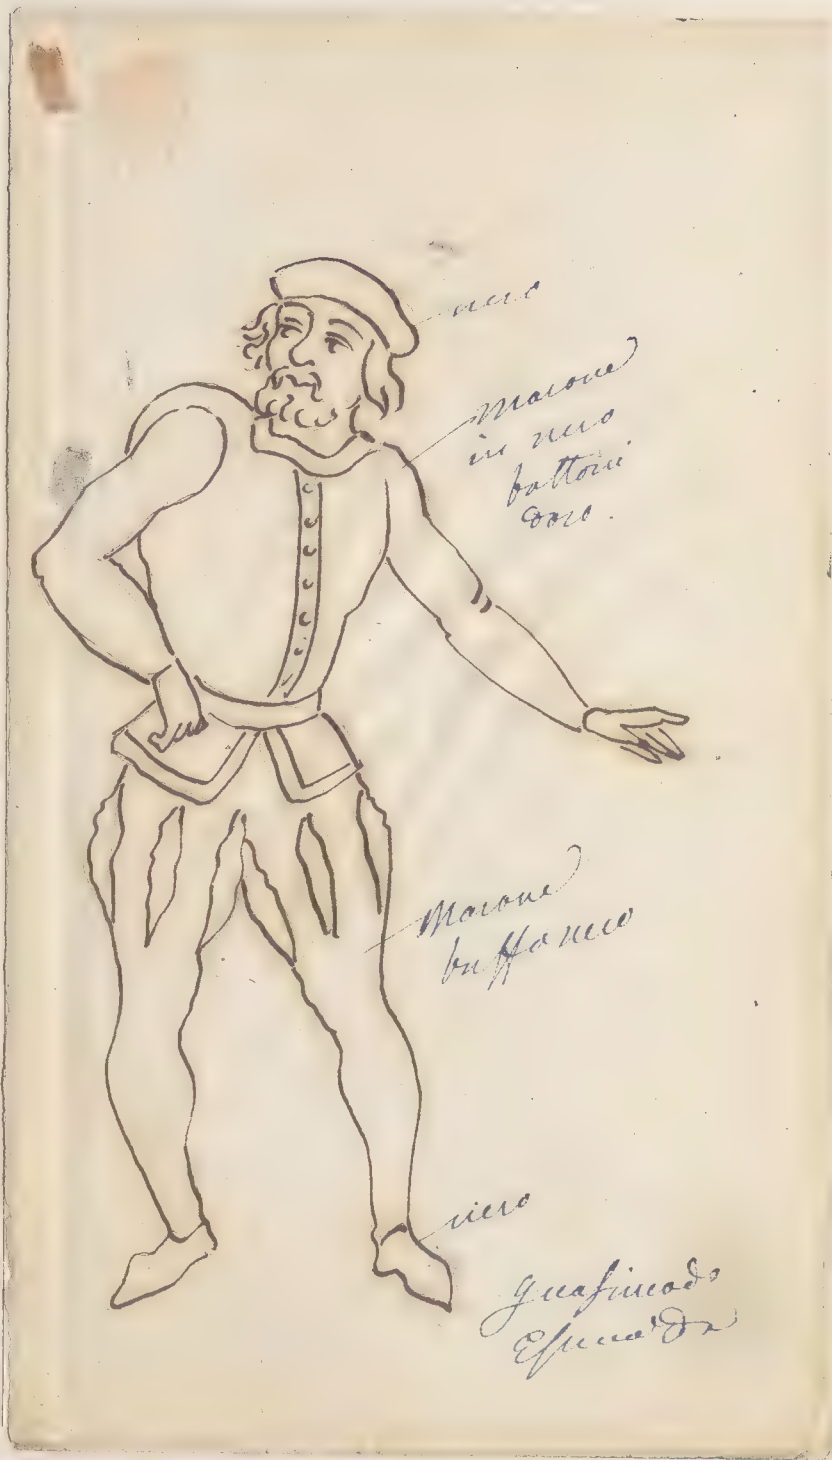 nero
Marone
in nero
bottoni
doro.
Marone
buffo nero
nero
Quasimodo
Esmeralda